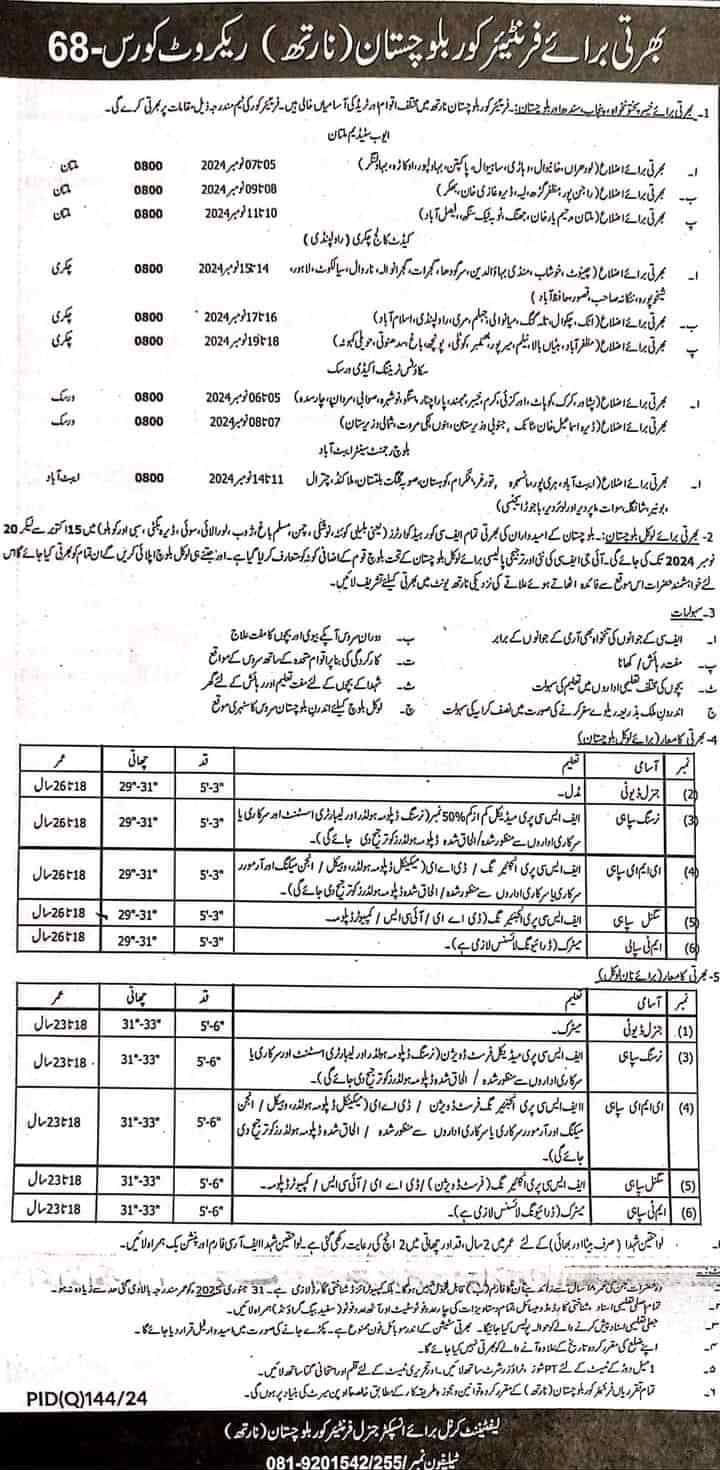 بھرتی برائے فرنٹیئر کور بلوچستان (نارتھ) ریکروٹ کورس-68
1- بھرتی برائے خیبر پختونخواہ، پنجاب، سندھ اور بلوچستان:۔ فرنٹیئر کور بلوچستان نارتھ میں مختلف اقوام اور ٹریڈ کی آسامیاں خالی ہیں۔ فرنٹیئر کور کی ٹیم مندرجہ ذیل مقامات پر بھرتی کرے گی۔
ایوب سٹیڈیم ملتان
ا۔ بھرتی برائے اضلاع (لودھراں، خانیوال، وہاڑی، ساہیوال، پاکپتن، بہاولپور، اوکاڑہ، بہاولنگر) 05تا07 نومبر 2024 0800 ملتان
ب۔ بھرتی برائے اضلاع (راجن پور، مظفر گڑھ، لیہ، ڈیرہ غازی خان، بھکر) 08تا09 نومبر 2024 0800 ملتان
پ بھرتی برائے اضلاع (ملتان، رحیم یار خان، جھنگ، ٹوبہ ٹیک سنگھ، فیصل آباد) 10تا11 نومبر 2024 0800 ملتان
کیڈٹ کالج چکری (راولپنڈی)
ا۔ بھرتی برائے اضلاع (چنیوٹ، خوشاب، منڈی بہاؤالدین، سرگودھا، گجرات، گجرانوالہ، نارووال، سیالکوٹ، لاہور، 14تا15 نومبر 2024 0800 چکری
شیخوپورہ، ننکانہ صاحب، قصور، حافظ آباد)
ب۔ بھرتی برائے اضلاع (اٹک، چکوال، تلہ گنگ، میانوالی، جہلم، مری، راولپنڈی، اسلام آباد) 16تا17 نومبر 2024 0800 چکری
پ بھرتی برائے اضلاع (مظفرآباد، ہٹیاں بالا، نیلم، میرپور، بھمبر، کوٹلی، پونچھ، باغ، سدھنوتی، حویلی کہوٹہ) 18تا19 نومبر 2024 0800 چکری
سکاؤٹس ٹریننگ اکیڈمی ورسک
ا۔ بھرتی برائے اضلاع (پشاور، کرک، کوہاٹ، اورکزئی، کرم، خیبر، مہمند، پاراچنار، ہنگو، نوشہرہ، صوابی، مردان، چارسدہ) 05تا06 نومبر 2024 0800 ورسک
بھرتی برائے اضلاع (ڈیرہ اسماعیل خان، ٹانک، جنوبی وزیرستان، بنوں، لکی مروت، شمالی وزیرستان) 07تا08 نومبر 2024 0800 ورسک
بلوچ رجمنٹ سینٹر ایبٹ آباد
ا۔ بھرتی برائے اضلاع (ایبٹ آباد، ہری پور، مانسہرہ، تورغر، بٹگرام، کوہستان، صوبہ گلگت بلتستان، ملاکنڈ، چترال 11تا14 نومبر 2024 0800 ایبٹ آباد
، بونیر، شانگلہ، سوات، اپر دیر اور لوئر دیر، باجوڑ ایجنسی)
2- بھرتی برائے لوکل بلوچستان:۔ بلوچستان کے امیدواران کی بھرتی تمام ایف سی کور ہیڈ کوارٹرز (یعنی بلیلی کوئٹہ، نوشکی، چمن، مسلم باغ، ژوب، لورالائی، سوئی، ڈیرہ بگٹی، سبی اور کوہلو) میں 15 اکتوبر سے لیکر 20
نومبر 2024 تک کی جائے گی۔ آئی جی ایف سی کی نئی اور ترجیحی پالیسی برائے لوکل بلوچستان کے تحت بلوچ قوم کے اضافی کوٹہ کو متعارف کرایا گیا ہے۔ اور جتنے ہی لوکل بلوچ اپلائی کریں گے ان تمام کو بھرتی کیا جائے گا اس
لئے خواہشمند حضرات اس موقع سے فائدہ اٹھاتے ہوئے علاقے کی نزدیکی نارتھ یونٹ میں بھرتی کیلئے تشریف لائیں۔
3- سہولیات
ا۔ ایف سی کے جوانوں کی تنخواہ بھی آرمی کے جوانوں کے برابر ب۔ دوران سروس آپکے بیوی اور بچوں کا مفت علاج
پ۔ مفت رہائش / کھانا ت۔ کارکردگی کی بنا پر اقوام متحدہ کے ساتھ سروس کے مواقع
ٹ۔ بچوں کی مختلف تعلیمی اداروں میں تعلیم کی سہولت ث۔ شہدا کے بچوں کے لئے مفت تعلیم اور رہائش کے لئے گھر
ج اندرون ملک بذریعہ ریلوے سفر کرنے کی صورت میں نصف کرایہ کی سہولت چ۔ لوکل بلوچ کیلئے اندرون بلوچستان سروس کا سنہری موقع
4- بھرتی کا معیار (برائے لوکل بلوچستان)
نمبر آسامی تعلیم قد چھاتی عمر
(2) جنرل ڈیوٹی مڈل۔ 5'-3" 29"-31" 18تا26 سال
(3) نرسنگ سپاہی ایف ایس سی پری میڈیکل کم از کم 50% نمبر (نرسنگ ڈپلومہ ہولڈرز اور لیبارٹری اسسٹنٹ اور سرکاری یا 5'-3" 29"-31" 18تا26 سال
سرکاری اداروں سے منظور شدہ / الحاق شدہ ڈپلومہ ہولڈرز کو ترجیح دی جائے گی)۔
(4) ای ایم ای سپاہی ایف ایس سی پری انجینئرنگ / ڈی اے ای (میکینیکل ڈپلومہ ہولڈرز، وہیکل / انجن میکینک اور آرمورر 5'-3" 29"-31" 18تا26 سال
سرکاری یا سرکاری اداروں سے منظور شدہ / الحاق شدہ ڈپلومہ ہولڈرز کو ترجیح دی جائے گی)۔
(5) سگنل سپاہی ایف ایس سی پری انجینئرنگ (ڈی اے ای / آئی سی ایس / کمپیوٹر ڈپلومہ۔ 5'-3" 29"-31" 18تا26 سال
(6) ایم ٹی سپاہی میٹرک (ڈرائیونگ لائسنس لازمی ہے)۔ 5'-3" 29"-31" 18تا26 سال
5- بھرتی کا معیار (برائے نان لوکل)
نمبر آسامی تعلیم قد چھاتی عمر
(1) جنرل ڈیوٹی میٹرک۔ 5'-6" 31"-33" 18تا23 سال
(3) نرسنگ سپاہی ایف ایس سی پری میڈیکل فرسٹ ڈویژن (نرسنگ ڈپلومہ ہولڈرز اور لیبارٹری اسسٹنٹ اور سرکاری یا 5'-6" 31"-33" 18تا23 سال
سرکاری اداروں سے منظور شدہ / الحاق شدہ ڈپلومہ ہولڈرز کو ترجیح دی جائے گی)۔
(4) ای ایم ای سپاہی ایف ایس سی پری انجینئرنگ فرسٹ ڈویژن / ڈی اے ای (میکینیکل ڈپلومہ ہولڈرز، وہیکل / انجن 5'-6" 31"-33" 18تا23 سال
میکینک اور آرمورر سرکاری یا سرکاری اداروں سے منظور شدہ / الحاق شدہ ڈپلومہ ہولڈرز کو ترجیح دی
جائے گی)۔
(5) سگنل سپاہی ایف ایس سی پری انجینئرنگ (فرسٹ ڈویژن) / ڈی اے ای / آئی سی ایس / کمپیوٹر ڈپلومہ۔ 5'-6" 31"-33" 18تا23 سال
(6) ایم ٹی سپاہی میٹرک (ڈرائیونگ لائسنس لازمی ہے)۔ 5'-6" 31"-33" 18تا23 سال
لواحقین شہدا (صرف بیٹا اور بھائی) کے لئے عمر میں 2 سال، قد اور چھاتی میں 2 انچ کی رعایت رکھی گئی ہے۔ لواحقین شہدا ایف آر سی فارم اور پنشن بک ہمراہ لائیں۔
قابل قبول نہیں ہوگا۔ بلکہ کمپیوٹرائزڈ شناختی کارڈ لازمی ہے۔ 31 جنوری 2025 کو عمر مندرجہ بالا دی گئی حد سے زیادہ نہ ہو۔
۲۔ تمام اصلی تعلیمی اسناد، شناختی کارڈ، ڈومیسائل، تمام دستاویزات کی چار عدد فوٹو سٹیٹ اور آٹھ عدد فوٹو (سفید بیک گراؤنڈ) ہمراہ لائیں۔
۳۔ جعلی تعلیمی اسناد پیش کرنے والے کو حوالہ پولیس کیا جائیگا۔ بھرتی سٹیشن کے اندر موبائل فون ممنوع ہے۔ پکڑے جانے کی صورت میں امیدوار فیل قرار دیا جائے گا۔
۴۔ اپنے ضلع کی مقررہ کردہ تاریخ کے علاوہ آنے والے کو بھرتی نہیں کیا جائے گا۔
۵۔ 1 میل دوڑ کے ٹیسٹ کے لئے PT شوز، ٹراؤزر، شرٹ ساتھ لائیں۔ اور تحریری ٹیسٹ کے لئے قلم اور امتحانی گتا ساتھ لائیں۔
۶۔ تمام تقرریاں فرنٹیئر کور بلوچستان (نارتھ) کے مقرر کردہ قوانین و طریقہ کار کے مطابق خالصتاً اوپن میرٹ کی بنیاد پر ہوں گی۔
PID(Q)144/24
لیفٹیننٹ کرنل برائے انسپکٹر جنرل فرنٹیئر کور بلوچستان (نارتھ)
ٹیلیفون نمبر / 081-9201542/255